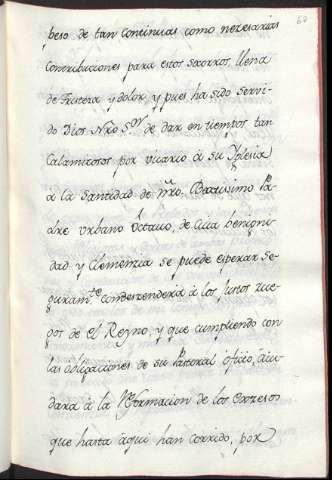 60
peso de tan Continuas como necesarias
Contribuciones para estos socorros, llena
de tristeza y dolor, y pues ha sido servi-
do Dios Nro Sor de dar en tiempos tan
Calamitosos por vicario à su Yglesia
à la Santidad de nro. Beatisimo Pa-
dre Vrbano Octauo, de Cuia benigni-
dad y Clemenzia se puede esperar se-
guramte condeszenderà à los justos rue-
gos de el Reyno, y que cumpliendo con
las obligaciones de su Pastoral ofizio, aiu-
darà à la Reformacion de los excesos
que hasta aqui han corrido, por